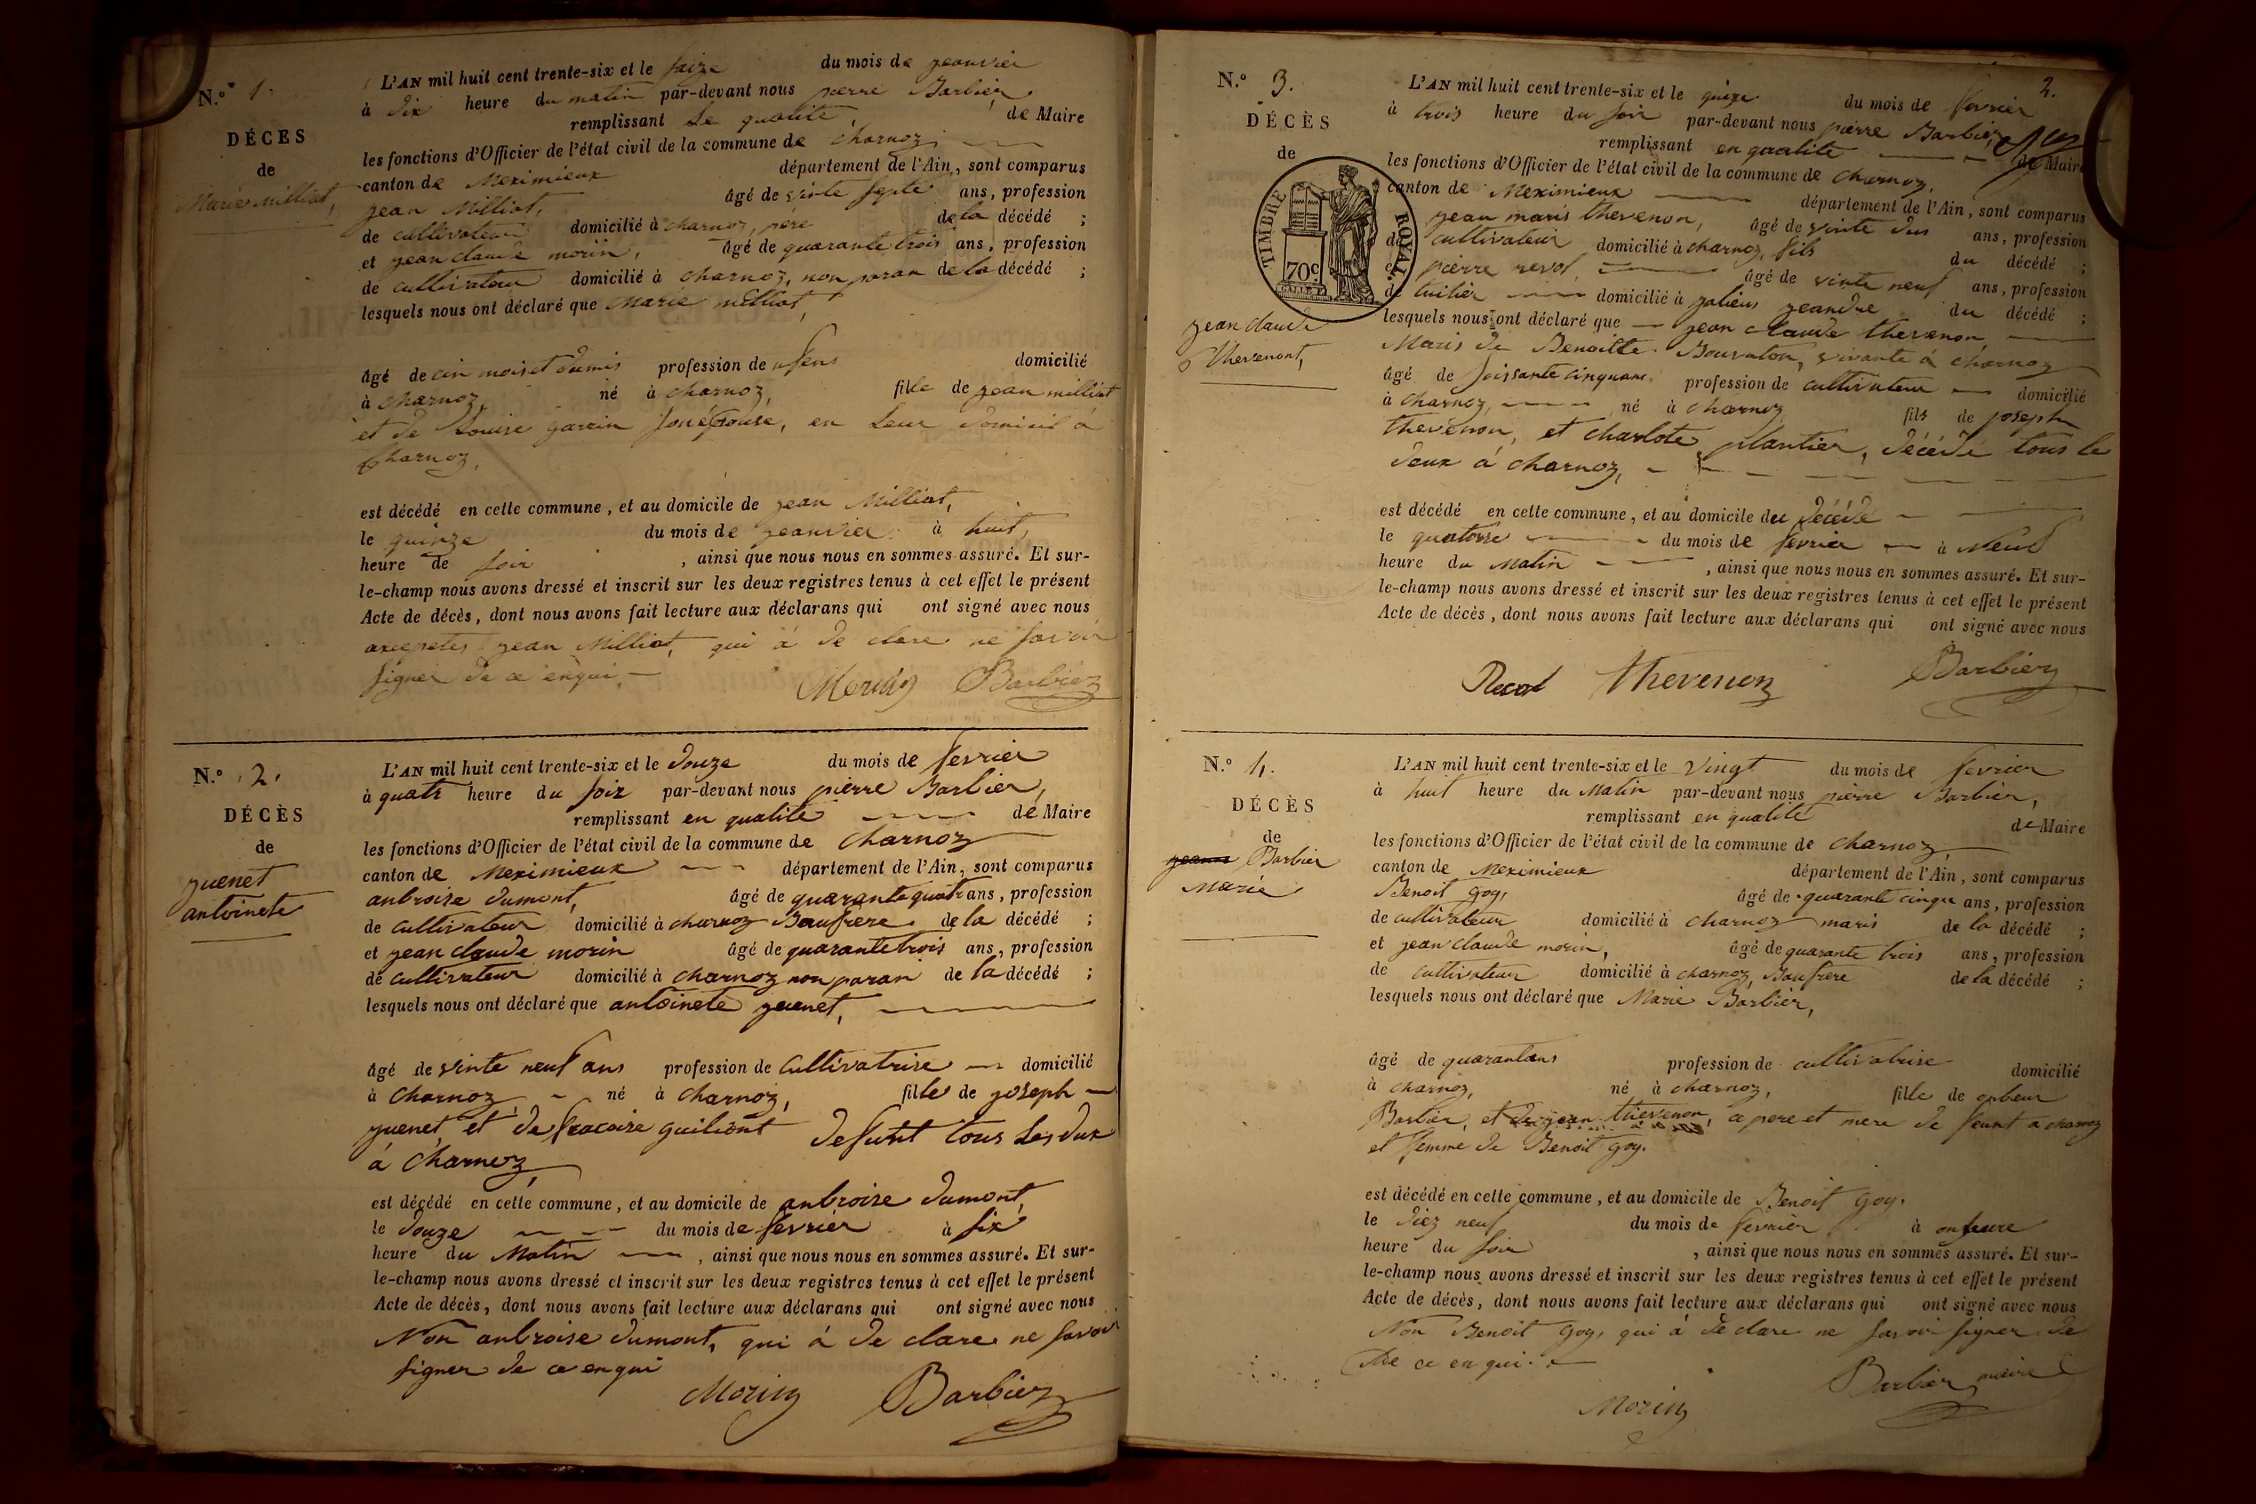 N.º 1.
DÉCES
de
Marie Milliat,
L'AN mil huit cent trente-six et le saize du mois de jeanvier
à dix heure du matin par-devant nous pierre Barbier,
remplissant Le qualité de Maire
les fonctions d'Officier de l'état civil de la commune de charnoz
canton de Meximieux département de l'Ain, sont comparus
jean Milliat, âgé de vinte septe ans, profession
de cultivateur domicilié à charnoz, père de la décédé ;
et jean claude morin, âgé de quarante trois ans, profession
de cultivateur domicilié à charnoz, non paran de la décédé ;
lesquels nous ont déclaré que Marie milliat,
âgé de cin mois et demis profession de domicilié
à charnoz, né à charnoz, fille de jean milliat
et de Louise garrin son épouse, en Leur domicil à
charnoz,
est décédé en cette commune, et au domicile de jean Milliat,
le quinze du mois de jeanvier à huit,
heure de soir , ainsi que nous nous en sommes assuré. Et sur-
le-champ nous avons dressé et inscrit sur les deux registres tenus à cet effet le présent
Acte de décès, dont nous avons fait lecture aux déclarans qui ont signé avec nous
jean Milliat, qui à de clare ne savoir
signer de ce enqui
Morin Barbier
N.º 2.
DÉCÈS
de
juenet
antoinete
L'AN mil huit cent trente-six et le douze du mois de fevrier
à quatr heure du soir par-devant nous pierre Barbier,
remplissant en qualité de Maire
les fonctions d'Officier de l'état civil de la commune de charnoz
canton de Meximieux département de l'Ain, sont comparus
anbroise dumont, âgé de quarante quatr ans, profession
de cultivateur domicilié à charnoz Baufrere de la décédé ;
et jean claude morin âgé de quarante trois ans, profession
de cultivateur domicilié à charnoz non paran de la décédé ;
lesquels nous ont déclaré que antoinete juenet,
âgé de vinte neuf ans profession de cultivatrise domicilié
à charnoz né à charnoz, fille de joseph
juenet, et de defunt tous Les dux
à charnoz,
est décédé en cette commune, et au domicile de anbroise dumont,
le douze du mois de fevrier à six
heure du Matin , ainsi que nous nous en sommes assuré. Et sur-
le-champ nous avons dressé et inscrit sur les deux registres tenus à cet effet le présent
Acte de décès, dont nous avons fait lecture aux déclarans qui ont signé avec nous
Non anbroise dumont, qui à de clare ne savoir
signer de ce enqui
Morin Barbier
2.
N.º 3.
DÉCÈS
de
TIMBRE ROYAL.
70c
jean claude
thevenont,
L'AN mil huit cent trente-six et le quize du mois de fevrier
à trois heure du soir par-devant nous pierre Barbier,
remplissant en qualite de Maire
les fonctions d'Officier de l'état civil de la commune de charnoz,
canton de Meximieux département de l'Ain, sont comparus
jean maris thevenon, âgé de vinte dus ans, profession
de cultivateur domicilié à charnoz, fils du décédé ;
et pierre revol, âgé de vinte neuf ans, profession
de tuilier domicilié à jalieus du décédé ;
lesquels nous ont déclaré que jean claude thevenon,
Maris de Benoitte Bouvaton, vivante à charnoz
âgé de soissante cinquans profession de cultivateur domicilié
à charnoz, né à charnoz fils de joseph
thevenon, et charlote plantier, décédé tous le
deux à charnoz,
est décédé en cette commune, et au domicile du décédé
le quatorse du mois de fevrier à Neuf
heure du Matin , ainsi que nous nous en sommes assuré. Et sur-
le-champ nous avons dressé et inscrit sur les deux registres tenus à cet effet le présent
Acte de décès, dont nous avons fait lecture aux déclarans qui ont signé avec nous
Revol thevenon Barbier
N.º 4.
DÉCÈS
de
Barbier
Marie
L'AN mil huit cent trente-six et le vingt du mois de fevrier
à huit heure du Matin par-devant nous pierre Barbier,
remplissant en qualité de Maire
les fonctions d'Officier de l'état civil de la commune de charnoz
canton de Meximieux département de l'Ain, sont comparus
Benoit goy, âgé de quarante cinqu ans, profession
de cultivateur domicilié à charnoz maris de la décédé ;
et jean claude morin, âgé de quarante trois ans, profession
de cultivateur domicilié à charnoz, Baufrere de la décédé ;
lesquels nous ont déclaré que Marie Barbier,
âgé de quarantans profession de cultivatrise domicilié
à charnoz, né à charnoz, fille de
Barbier, et de jean thevenon, ce pere et mere de feunt a charnoz
et femme de Benoit goy.
est décédé en cette commune, et au domicile de Benoit goy.
le diez neuf du mois de fevrier à onseure
heure du soir , ainsi que nous nous en sommes assuré. Et sur-
le-champ nous avons dressé et inscrit sur les deux registres tenus à cet effet le présent
Acte de décès, dont nous avons fait lecture aux déclarans qui ont signé avec nous
Non Benoit goy, qui à de clare ne savoir signer de
de ce en qui.
Barbier maire
Morin